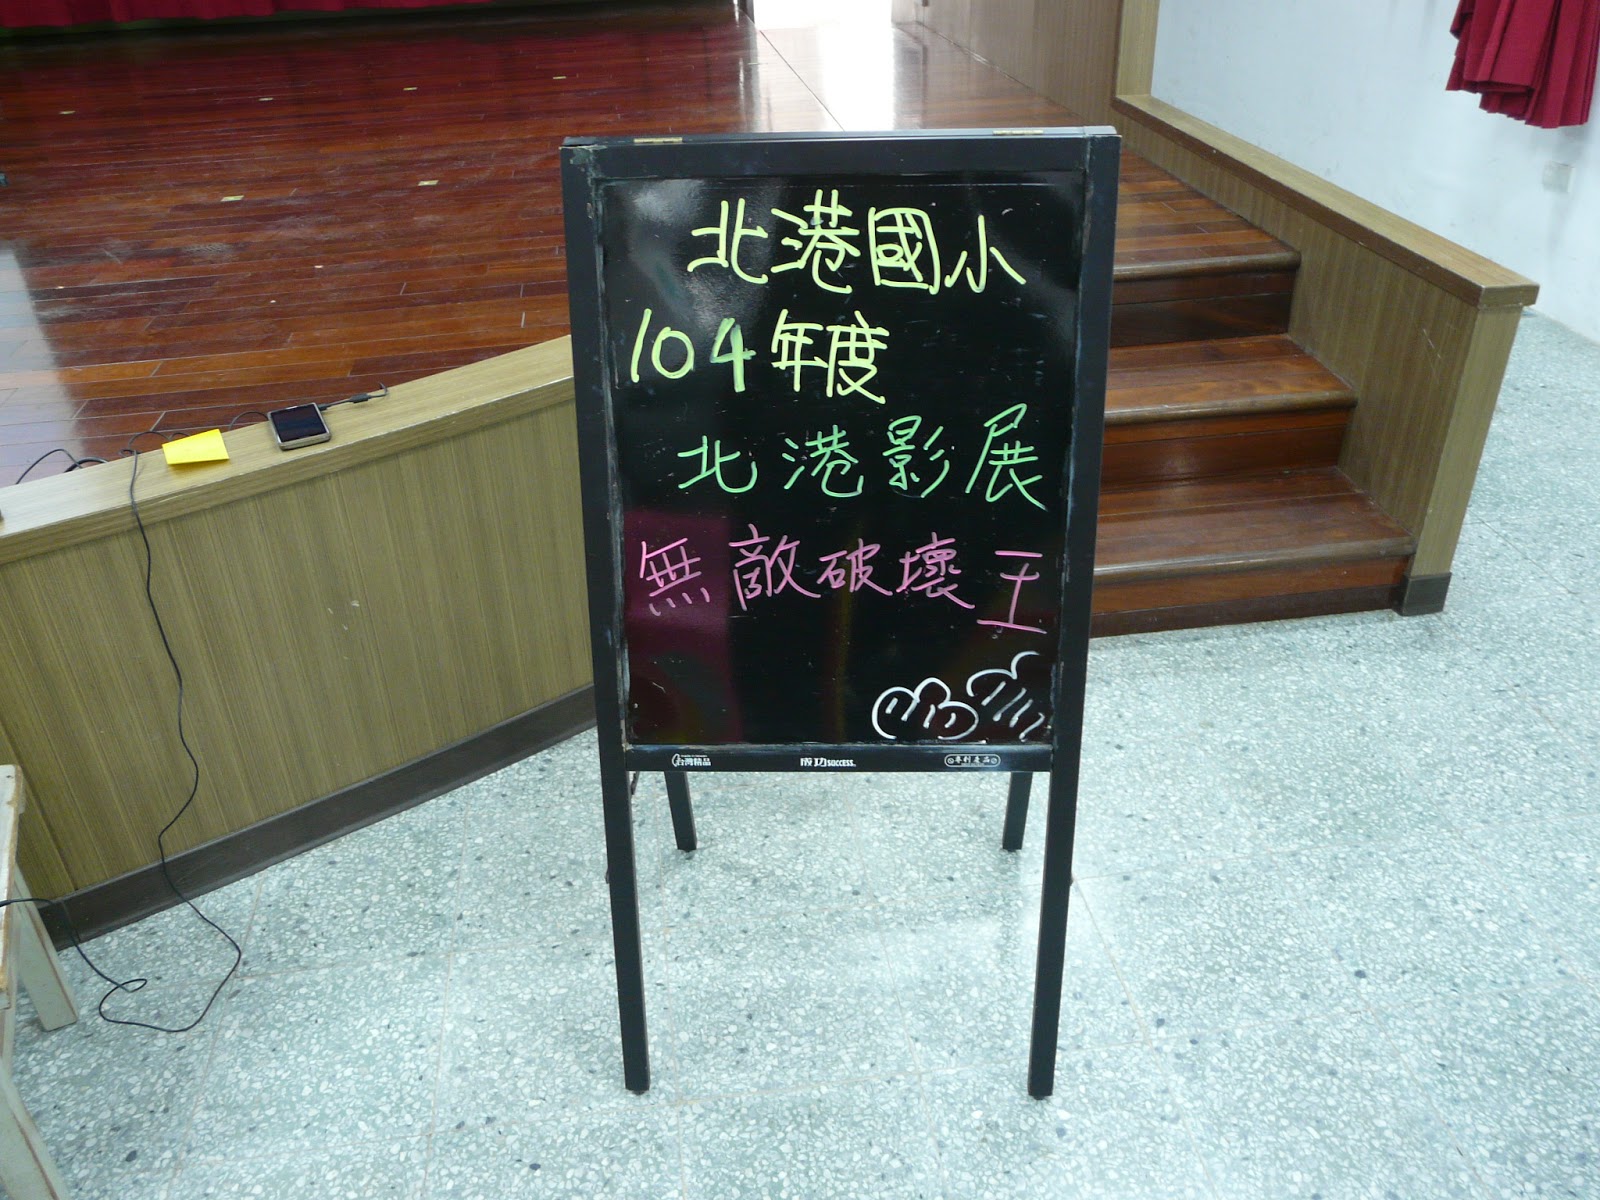 北港國小
104年度
北港影展
無敵破壞王
台灣精品 成功SUCCESS. 專利產品